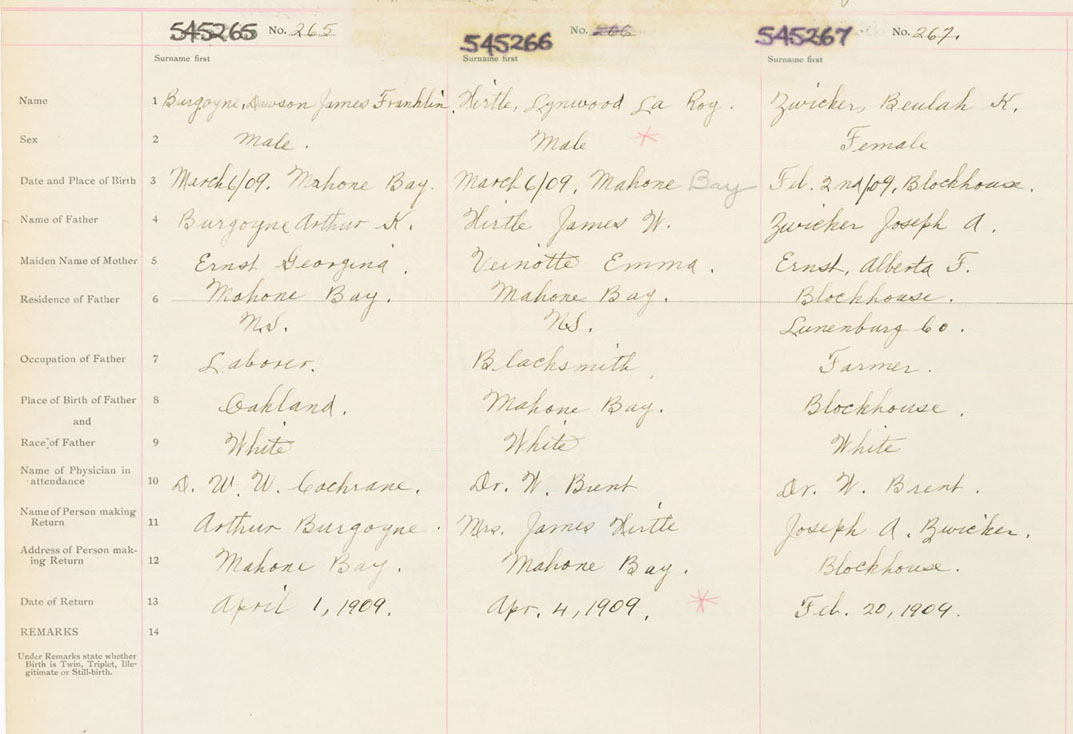 545265 No. 265 545266 No. 266 545267 No. 267.
Surname first Surname first Surname first
Name 1 Burgoyne, Dawson James Franklin Hirtle, Lynwood La Roy. Zwicker, Beulah K.
Sex 2 Male. Male Female
Date and Place of Birth 3 March 6/09. Mahone Bay. March 6/09, Mahone Bay Feb. 2nd/09, Blockhouse.
Name of Father 4 Burgoyne Arthur K. Hirtle James W. Zwicker Joseph A.
Maiden Name of Mother 5 Ernst Georgina. Veinotte Emma. Ernst, Alberta F.
Residence of Father 6 Mahone Bay. Mahone Bay. Blockhouse.
N.S. N.S. Lunenburg Co.
Occupation of Father 7 Laborer. Blacksmith. Farmer.
Place of Birth of Father 8 Oakland. Mahone Bay. Blockhouse.
and
Race of Father 9 White White White
Name of Physician in
attendance 10 D. W. W. Cochrane. Dr. W. Brent Dr. W. Brent.
Name of Person making
Return 11 Arthur Burgoyne. Mrs. James Hirtle Joseph A. Zwicker.
Address of Person mak-
ing Return 12 Mahone Bay. Mahone Bay. Blockhouse.
Date of Return 13 April 1, 1909. Apr. 4, 1909. Feb. 20, 1909.
REMARKS 14
Under Remarks state whether
Birth is Twin, Triplet, Ille-
gitimate or Still-birth.